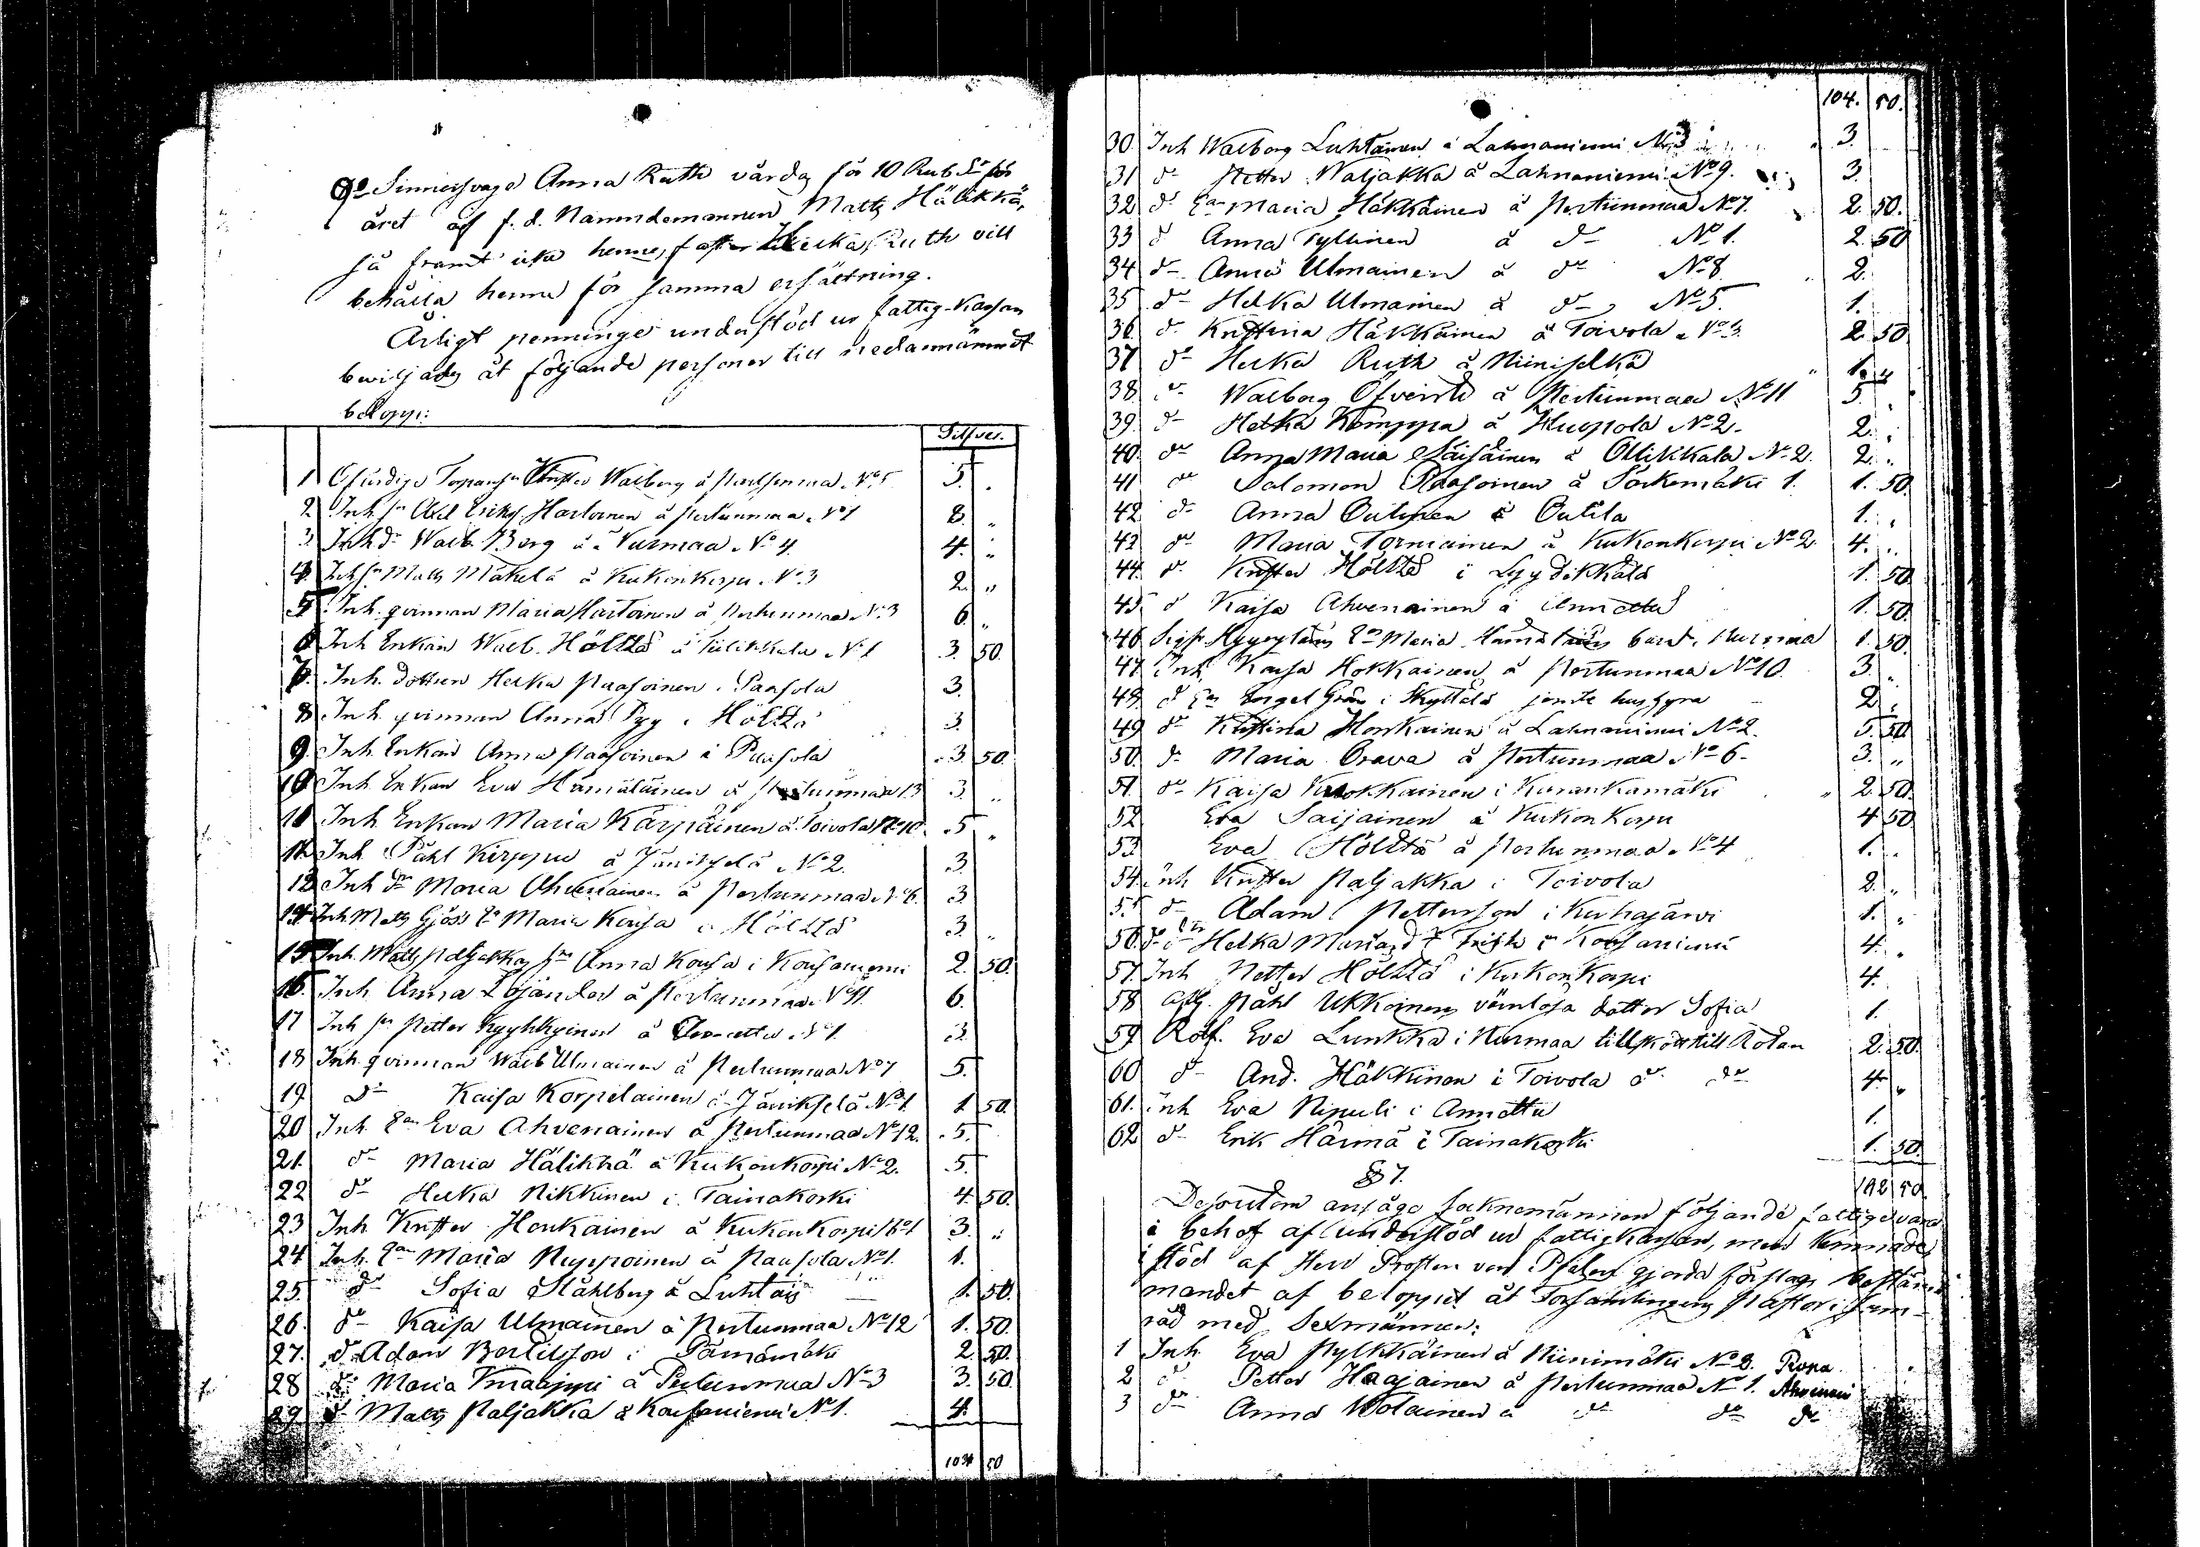 9o Sinnessvaga Anna Ruth vårdas för 10 Rub Sr för
året af f. d. Nämndemannen Matts Hälikkä,
så framt icke hennes faster Helka Ruth vill
behålla henne för samma ersättning.
Årligt penninge understöd ur fattig-Kassan
beviljades åt följande personer till nedannämndt
belopp:
Silfver.
1 Ofärdige Walborg å Pertunmaa No 5 5.
2. Inh. Axel Eriks. Hartoinen å Pertunmaa No 1 8. „
3 Inh. Walb. Berg å Nurmaa No 4. 4. „
4 Matts Mäkelä å Kukonkorpi No 3 2. „
5 Inh. qvinnan Maria Hartoinen å Pertunmaa No 3 6. „
6 Inh Enkan Walb. Hölttä å No 1 3. 50.
7. Inh. dottren Helka Paasoinen i Paasola 3.
8 Inh. qvinnan Anna Pyy i Hölttä 3.
9 Inh. Enkan Anna Paasoinen i Paasola 3. 50.
10 Inh Enkan Eva Hämäläinen å Pertunmaa 13 3. „
11 Inh. Enkan Maria Karppainen å Toivola No 10. 5 „
12 Inh. Påhl Kirppu å Jänikselä No 2. 3.
13 Inh Maria Ahvenainen å Pertunmaa No 6. 3
14 Inh Matts Gjös's Maria Kaisa i Hölttä 3. „
15 Inh. Matts Paljakkas Anna Kaisa i Konsaniemi 2. 50.
16. Inh Anna Lojander å Pertunmaa No 11. 6.
17 Inh Petter Kyyhkyinen å Annettu No 1. 3.
18 Inh. qvinnan Walb Ulmainen å Pertunmaa No 7 5.
19. do Kaisa Korpelainen å Jänikselä No 1. 1 50.
20 Inh. Eva Ahvenainen å Pertunmaa No 12. 5.
21. do Maria Hälikkä å Kukonkorpi No 2. 5.
22 do Helka Nikkinen i Tainakoski 4. 50.
23 Inh Krister Honkainen å Kukonkorpi No 1 3. „
24 Inh. Maria Reppoinen å Paasola No 1. 1.
25. do Sofia Ståhlberg å Luhtais 1. 50.
26. do Kaisa Ulmainen å Pertunmaa No 12 1. 50.
27. do Adam Bertilsson i 2. 50.
28 do Maria Knaappi å Pertunmaa No 3 3. 50.
29 do Matts Paljakka å Konsaniemi No 1. 4.
104 50
104. 50.
30. Inh Walborg Luhtanen å Lahnaniemi No 3 3.
31 do Petter Waljakka å Lahnaniemi No 9. 3.
32 do Maria Häkkäinen å Pertunmaa No 7. 2. 50.
33 do Anna Tyllinen å do No 1. 2. 50
34 do Anna Ulmainen å do No 8 2.
35 do Helka Ulmainen å do No 5. 1.
36 do Kristina Häkkäinen å Toivola No 3. 2. 50.
37 do Helka Ruth å Niiniselkä 1. „
38. do Walborg å Pertunmaa No 11 5. „
39. do Helka Kemppa å Huopola No 2. 2. „
40. do Anna Maria Säisäinen å Ollikkala No 2. 2. „
41 do Salomon Paasoinen å Särkemäki 1. 1. 50.
42 do Anna Outinen å Outila 1. „
43 do Maria Torniainen å Kukonkorpi No 2. 4. „
44. do Krister Hölttä i Lyydikkälä 1. 50.
45. do Kaisa Ahvenainen å Annettu 1. 50.
46 Maria barn. 1. 50.
47. Inh. Kaisa Hokkainen å Pertunmaa No 10. 3. „
48. do Engel Grön i Skyttälä jemte hushyra 2. „
49. do Kristina Honkainen å Lahnaniemi No 2. 5. 50
50. do Maria Orava å Pertunmaa No 6. 3. „
51. do Kaisa i Kurankamäki 2. 50.
52. Eva Saijainen å Kukonkorpi 4 50
53. Eva Hölttä å Pertunmaa No 4 1. „
54. Inh Krister Paljakka i Toivola 2. „
55 do Adam Pettersson i Kuhajärvi 1. „
56. do Helka i Konsaniemi 4. „
57. Inh Petter Hölttä i Kukonkorpi 4.
58 Påhl Ukkoinens värnlösa dotter Sofia 1.
59 Rotf. Eva Lunkka i Nurmaa tillskott till Rotan 2. 50.
60 do And. Häkkinen i Toivola do do 4. „
61. Inh Eva Ripuli i Annettu 1.
62 do Erik Härmä i Tainakoski 1. 50.
192 50
§ 7.
Dessutom ansågo Socknemännen följande fattige vara
i behof af understöd ur fattigkassan, men lemnade
i stöd af Herr Prosten von Pfalers gjorda förslag bestäm-
mandet af beloppet åt Församlingens Pastor i sam-
råd med Sexmännen:
1 Inh Eva Pylkkäinen å Niinimäki No 3. Ropa
2 do Petter Haajainen å Pertunmaa No 1. Ahvenniemi
3 do Anna Wotainen å do do do